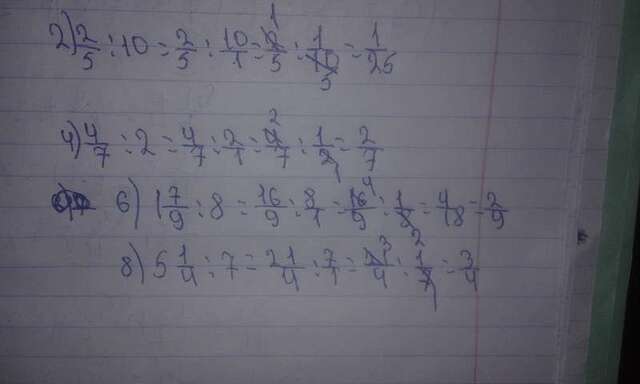 2) 2/5 : 10 = 2/5 : 10/1 = 2/5 : 1/10 = 1/25
4) 4/7 : 2 = 4/7 : 2/1 = 4/7 : 1/2 = 2/7
6) 1 7/9 : 8 = 16/9 : 8/1 = 16/9 : 1/8 = 4/18 = 2/9
8) 5 1/4 : 7 = 21/4 : 7/1 = 21/4 : 1/7 = 3/4